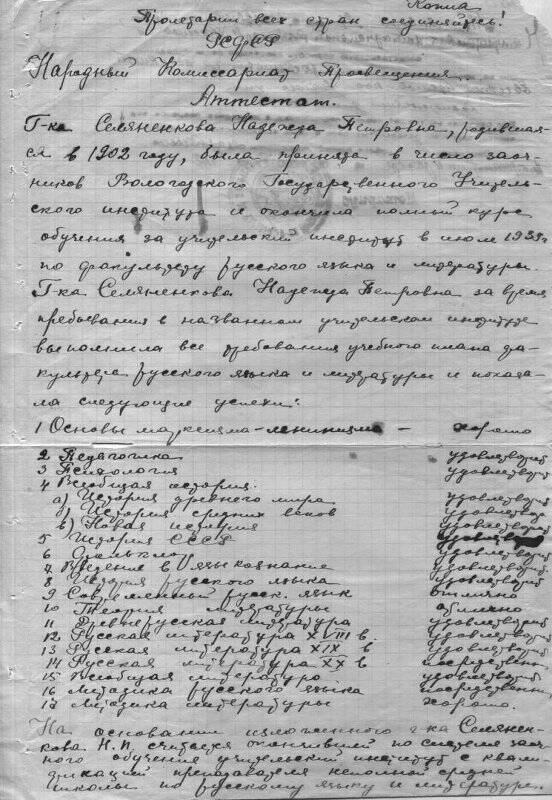 Копия
Пролетарии всех стран соединяйтесь!
РСФСР
Народный Комиссариат Просвещения
Аттестат.
Г-ка Селяненкова Надежда Петровна, родивша-
яся в 1902 году, была принята в число заоч-
ников Вологодского Государственного Учитель-
ского института и окончила полный курс
обучения за учительский институт в июле 1939 г
по факультету русского языка и литературы.
Г-ка Селяненкова Надежда Петровна за время
пребывания в названном учительском институте
выполнила все требования учебного плана фа-
культета русского языка и литературы и показа-
ла следующие успехи:
1 Основы марксизма-ленинизма - хорошо
2 Педагогика удовлетворит
3 Психология удовлетворит
4 Всеобщая история:
а) История древнего мира удовлетворит
б) История средних веков удовлетвор
в) Новая история удовлетворит
5 История СССР
6 Фольклор удовлетворит
7 Введение в языкознание удовлетворит
8 История русского языка удовлетворит
9 Современный русск. язык отлично
10 Теория литературы отлично
11 Древнерусская литература удовлетворит
12 Русская литература XVIII в. удовлетворит
13 Русская литература XIX в удовлетворит
14 Русская литература XX в посредственн
15 Всеобщая литература удовлетворит
16 Методика русского языка посредственн
17 Методика литературы хорошо.
На основании изложенного г-ка Селянен-
кова Н.П. считается окончившей по системе заоч-
ного обучения учительский институт с квали-
фикацией преподавателя неполной средней
школы по русскому языку и литературе.